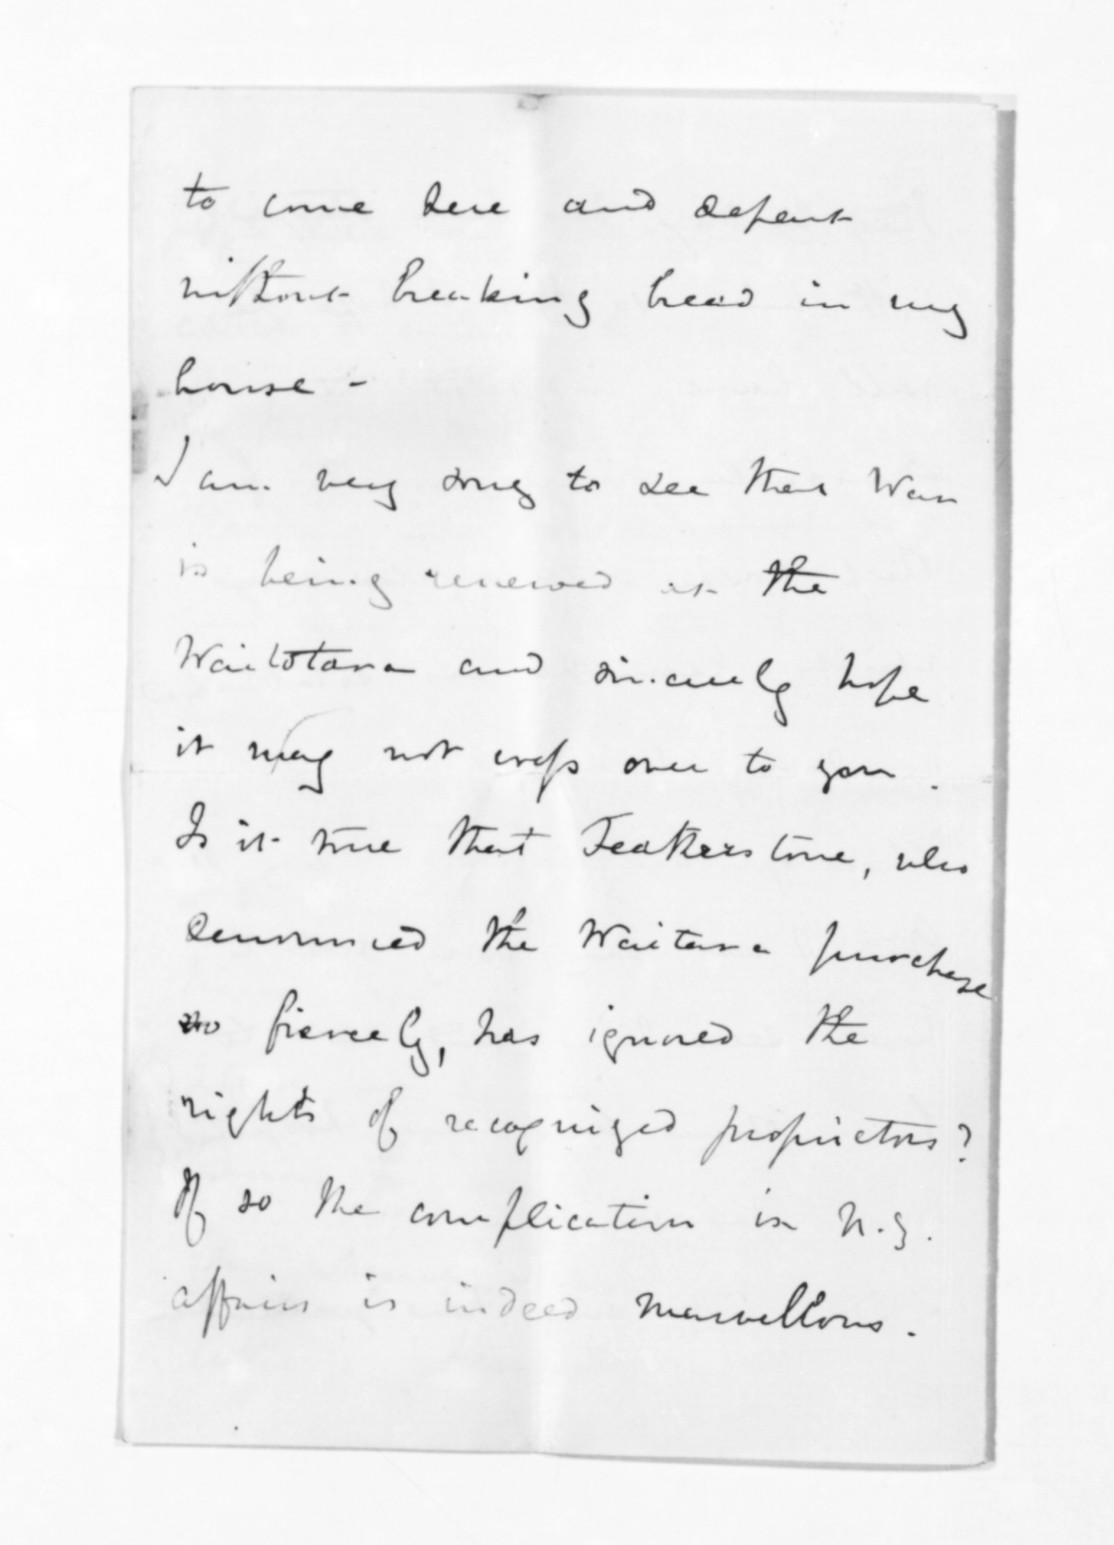 to come here and depart
without breaking bread in my
house -
I am very sorry to see that War
is being renewed at the
Waitotara and sincerely hope
it may not cross over to you.
Is it true that Featherstone, who
denounced the Waitara purchase
so fiercely, has ignored the
rights of recognized proprietors?
If so the complication in N.Z.
affairs is indeed marvellous.